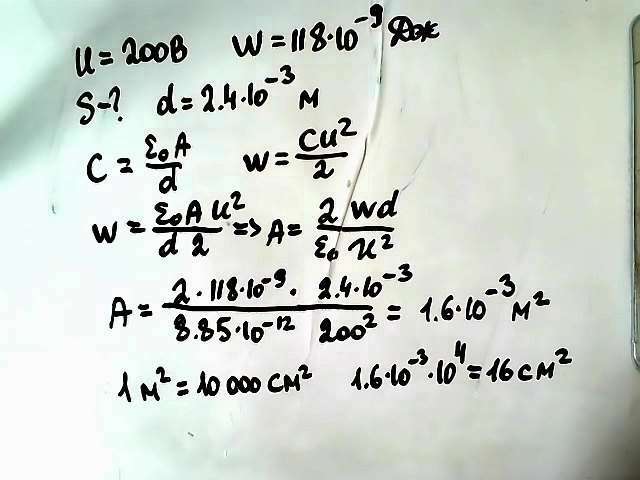 U = 200В W = 118·10⁻⁹ Дж
S-? d = 2.4·10⁻³ м
C = ε₀A/d W = CU²/2
W = ε₀A U²/d 2 => A = 2 Wd/ε₀ U²
A = 2·118·10⁻⁹· 2.4·10⁻³/8.85·10⁻¹² 200² = 1.6·10⁻³ м²
1 м² = 10 000 см² 1.6·10⁻³·10⁴ = 16 см²